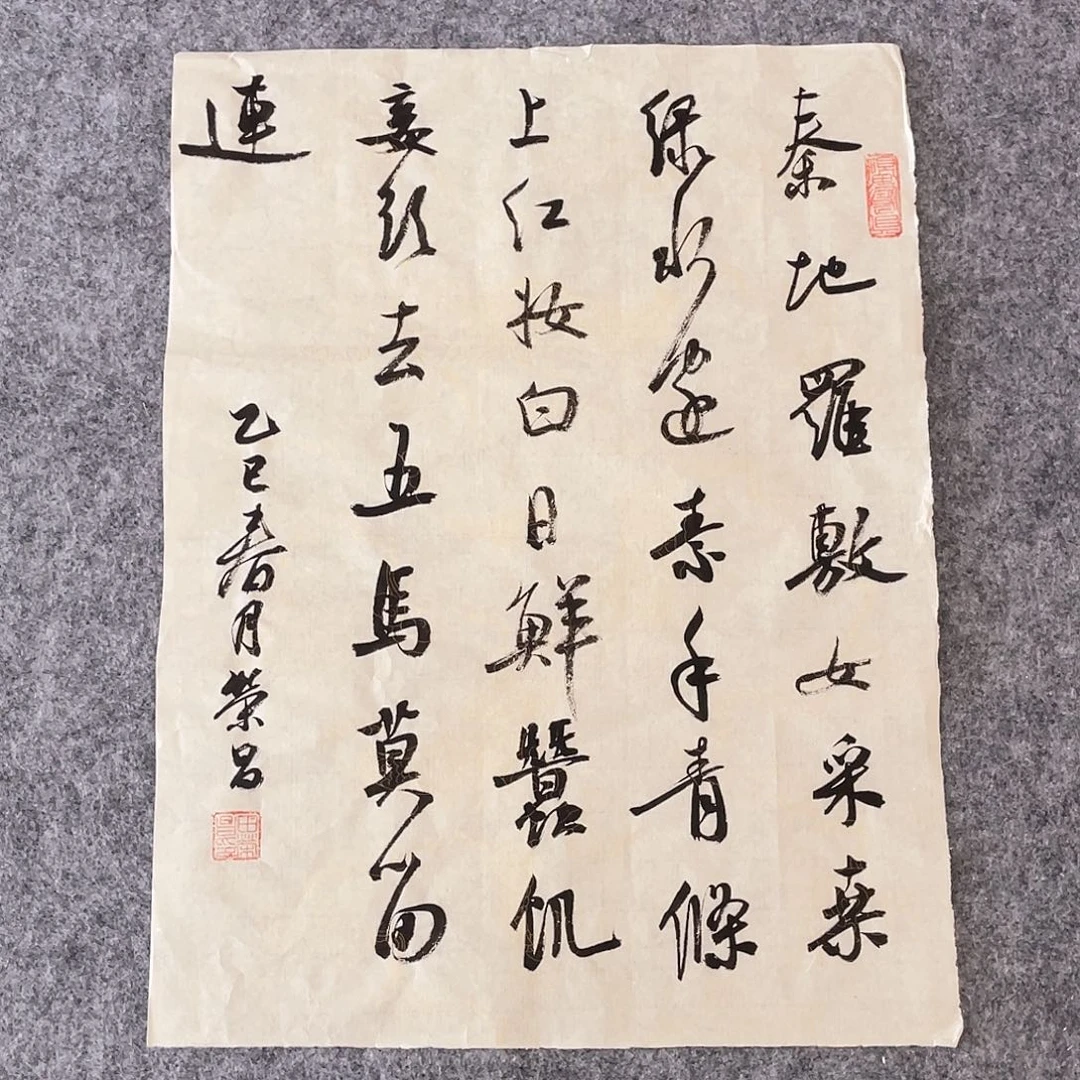 秦地羅敷女采桑
绿水边素手青條
上红妆白日鮮蠶饥
妾欲去五馬莫留
連
乙巳春月荣昌